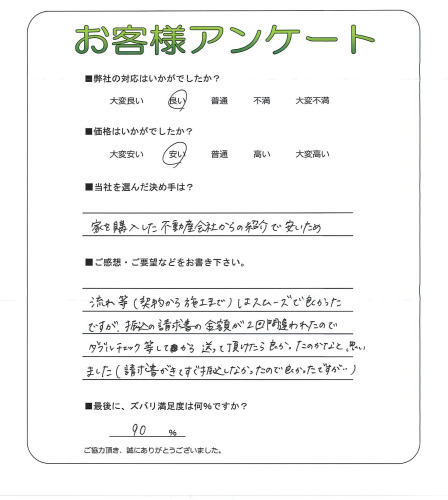 お客様アンケート
■弊社の対応はいかがでしたか？
大変良い 良い 普通 不満 大変不満
■価格はいかがでしたか？
大変安い 安い 普通 高い 大変高い
■当社を選んだ決め手は？
家を購入した不動産会社からの紹介で安いため
■ご感想・ご要望などをお書き下さい。
流れ等（契約から施工まで）はスムーズで良かった
ですが、振込の請求書の金額が2回間違われたので
ダブルチェック等してから送って頂けたら良かったのかなと思い
ました（請求書がきてすぐ振込しなかったので良かったですが…）
■最後に、ズバリ満足度は何%ですか？
90 %
ご協力頂き、誠にありがとうございました。